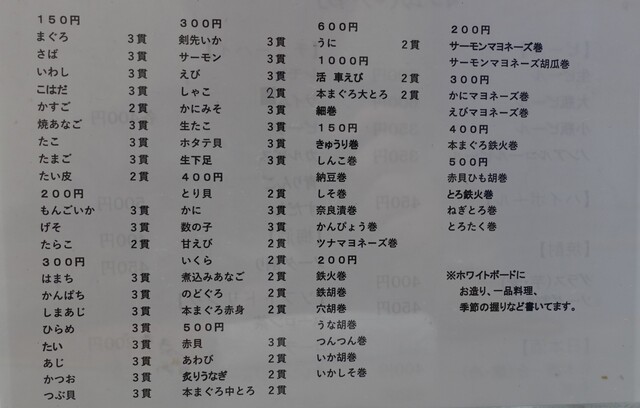 150円
まぐろ 3貫
さば 3貫
いわし 3貫
こはだ 3貫
かすご 2貫
焼あなご 3貫
たこ 3貫
たまご 3貫
たい皮 2貫
200円
もんごいか 3貫
げそ 3貫
たらこ 2貫
300円
はまち 3貫
かんぱち 3貫
しまあじ 3貫
ひらめ 3貫
たい 3貫
あじ 3貫
かつお 3貫
つぶ貝 3貫
300円
剣先いか 3貫
サーモン 3貫
えび 3貫
しゃこ 2貫
かにみそ 3貫
生たこ 3貫
ホタテ貝 3貫
生下足 3貫
400円
とり貝 2貫
かに 3貫
数の子 3貫
甘えび 2貫
いくら 2貫
煮込みあなご 2貫
のどぐろ 2貫
本まぐろ赤身 2貫
500円
赤貝 3貫
あわび 2貫
炙りうなぎ 2貫
本まぐろ中とろ 2貫
600円
うに 2貫
1000円
活 車えび 2貫
本まぐろ大とろ 2貫
細巻
150円
きゅうり巻
しんこ巻
納豆巻
しそ巻
奈良漬巻
かんぴょう巻
ツナマヨネーズ巻
200円
鉄火巻
鉄胡巻
穴胡巻
うな胡巻
つんつん巻
いか胡巻
いかしそ巻
200円
サーモンマヨネーズ巻
サーモンマヨネーズ胡瓜巻
300円
かにマヨネーズ巻
えびマヨネーズ巻
400円
本まぐろ鉄火巻
500円
赤貝ひも胡巻
とろ鉄火巻
ねぎとろ巻
とろたく巻
※ホワイトボードに
お造り、一品料理、
季節の握りなど書いてます。